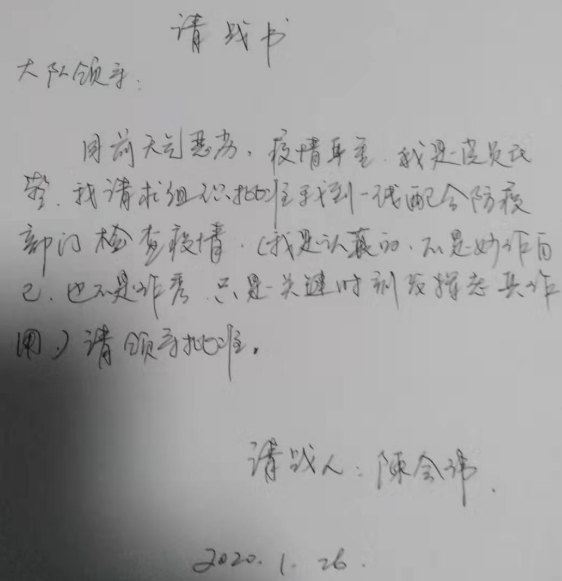 请战书
大队领导:
目前天气恶劣，疫情严重，我是党员民
警，我请求组织批准我到一线配合防疫
部门检查疫情，（我是认真的，不是炒作自
己，也不是作秀，只是关键时刻发挥党员作
用）请领导批准。
请战人：陈会
2020.1.26.